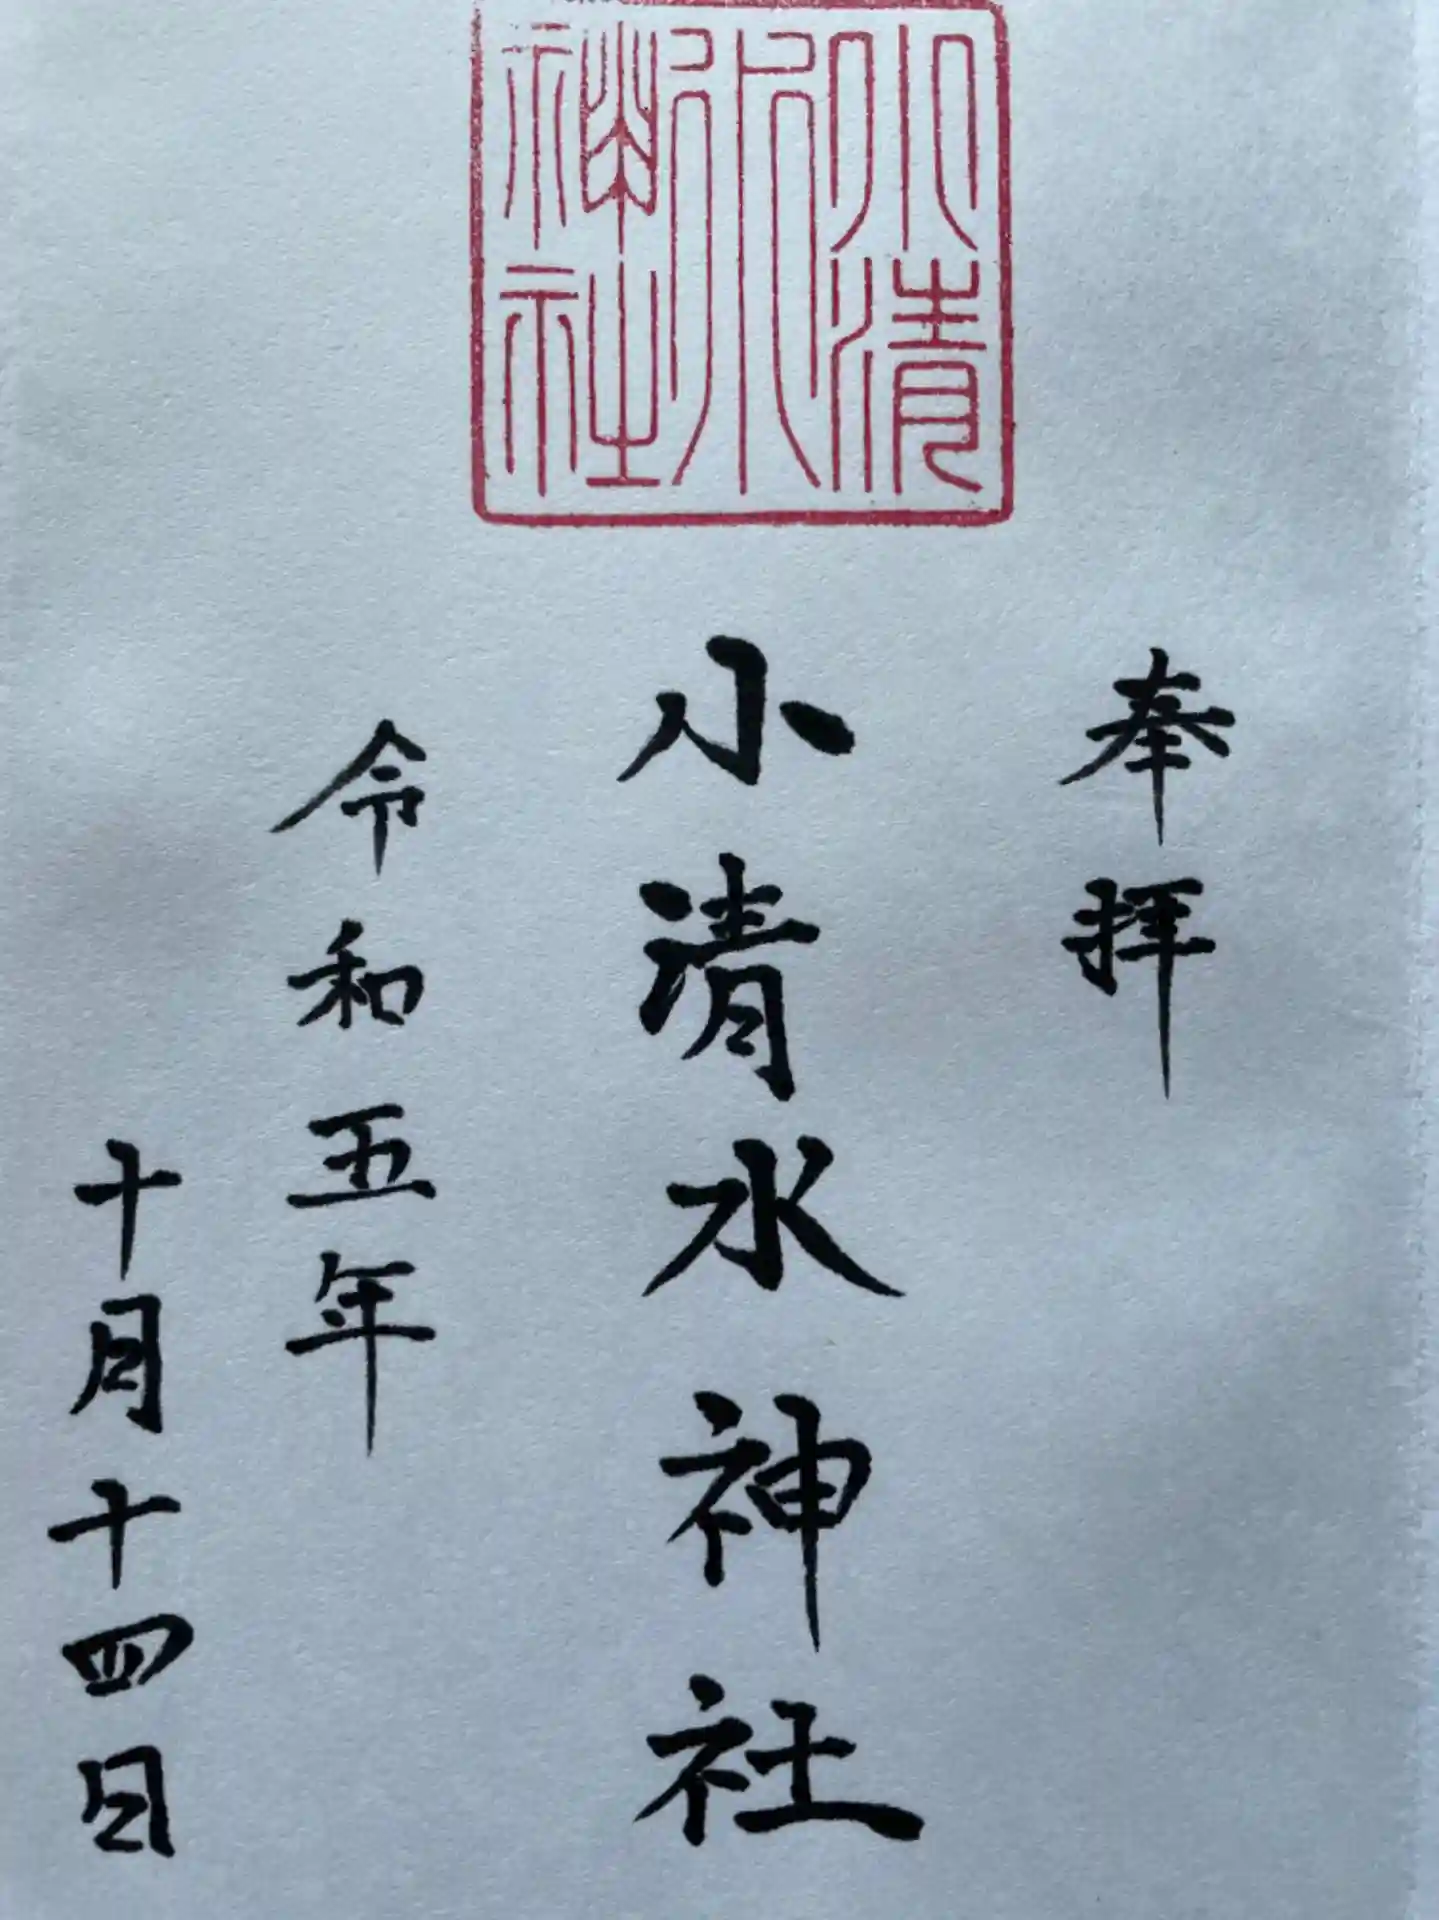 小清
水
神社
奉拝
小清水神社
令和五年
十月十四日